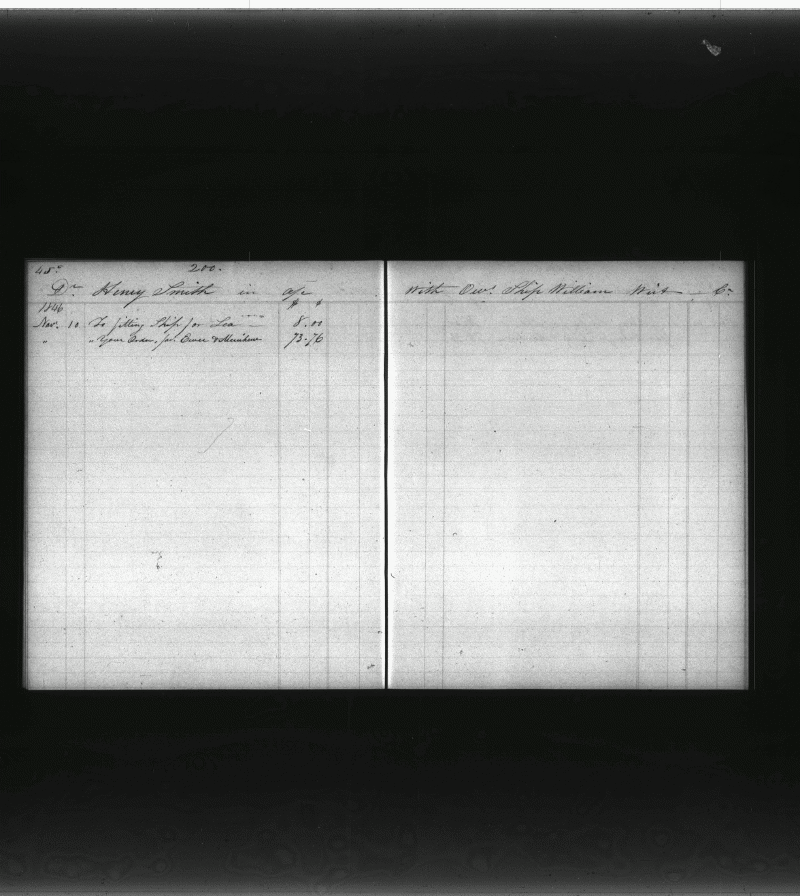 200.
Dr Henry Smith in a/c
With Ows. Ship William Wirt Cr
1846 $ ¢
Nov. 10 To fitting Ship for Sea 8.00
" " Your Order, for 73.76